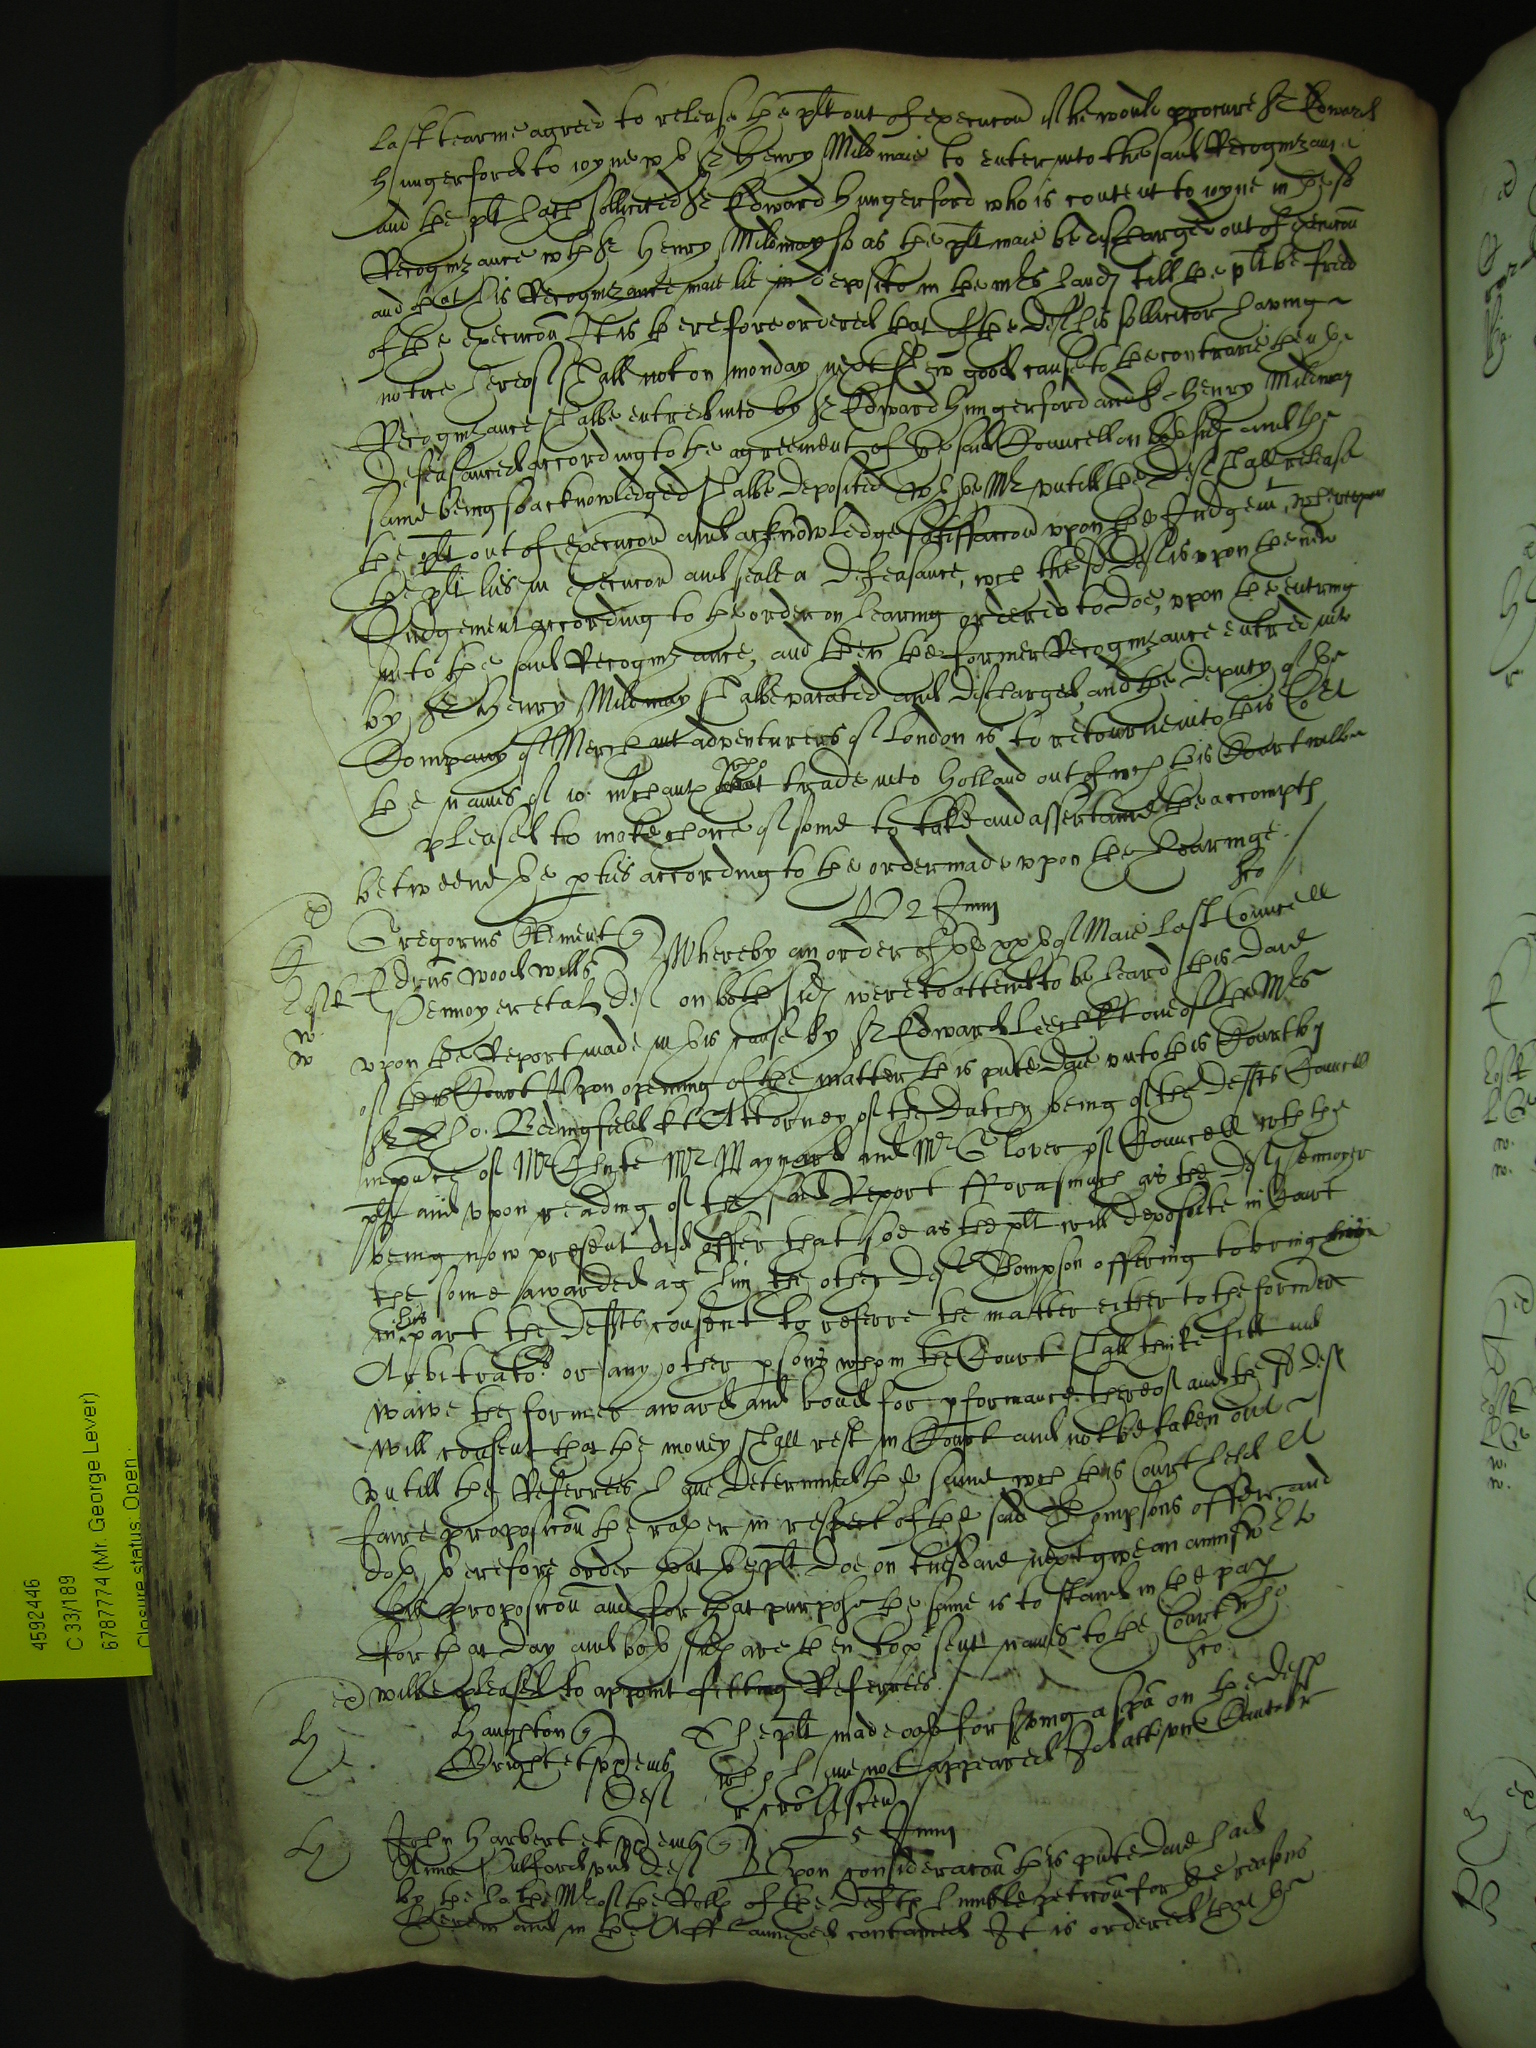 last tearme agreed to release the plt out of execucon if he would procure Sr Edward
Hungerford to ioyne wth Sr Henry Mildmaie to enter into the said Recognizance
and the plt hath sollicited Sr Edward Hungerford who is content to ioyne in the sd
Recognizance wth Sr Henry Mildmay so as the plt maie be discharged out of execucon
and that his Recognizance maie lie in deposito in the mrs hands till the plt be freed
of the execucon It is therefore ordered that if the deft his sollicitor having
notice hereof shall not on monday next shew good cause to the contrarie then the
Recognizance shalbe entred into by Sr Edward Hungerford and Sr Henry Mildmay
defeasanced according to the agreement of the said Councell on both sides and the
same being so acknowledged shalbe deposited wth the Mr untill the deft shall release
the plt out of execucon and acknowledge satisfaccon upon the Judgemt whereupon
the plt lies in execucon and seale a defeasance, wch the sd deft is upon the
Judgement according to the order on hearing ordered to doe, upon the entring
into the said Recognizance, and then the former Recognizance entred into
by Sr Henry Mildmay shalbe vacated and discharged, and the deputy of the
Company of Merchant adventurers of London is to retourne into this Co:rt
the names of 10 mrchants who trade into Holland out of wch this Court wilbe
pleased to make choice of some to take and assertaine the accompts
between the pties according to the order made upon the hearinge
2 Junij
Gregorius Clement
wood wills
Pennoyer et al deft
Whereby an order of the xxth of Maie last Councell
on both sides were to attend to be heard this daie
upon the Report made in this cause by Sr Edward Leech kt one of the Mrs
of this Court Upon opening of the matter this pnte daie unto this Court by
Sr Tho: Bedingfield kt Attorney of the Dutchy being of the defts Councell
in pnce of Mr Chute Mr Maynard and Mr Glover of Councell wth the
plt and upon reading of the said Report fforasmuch as the deft Pennoyer
being now present did offer that soe as the plt will deposite in Court
the some awarded agt him the other deft Thompson offering to bring
in his part the defts consent to referre the matter either to the former
Arbitrators or any other psons whom the Court shall thinke fitt and
waive the former award and bond for pformance thereof and the sd deft
will consent that the money shall rest in Court and not be taken out
untill the Referrees have determined the same wch this Court held a
faire proposicon the rather in respect of the said Thompsons offer and
doth therefore order that the plt doe on tuesdaie next give an answere to
this proposicon and for that purpose the same is to stand in the pap
for that day and both sides are then to psent names to the Court who
wilbe pleased to appoint fitting Referrees.
Haughton
Bright et ux deft
The plt made oath for serving a spa on the defts
who have not appeared
5 Junij
John Harbert et
Anna Pulford vid deft
Upon consideracon this pnte daie had
by the Mr of the Rolls of the defts humble peticon for the reasons
therein and in the Afft annexed contained It is ordered that the
4592446
C 33/189
6787774 (Mr. George Lever)
Closure status: Open